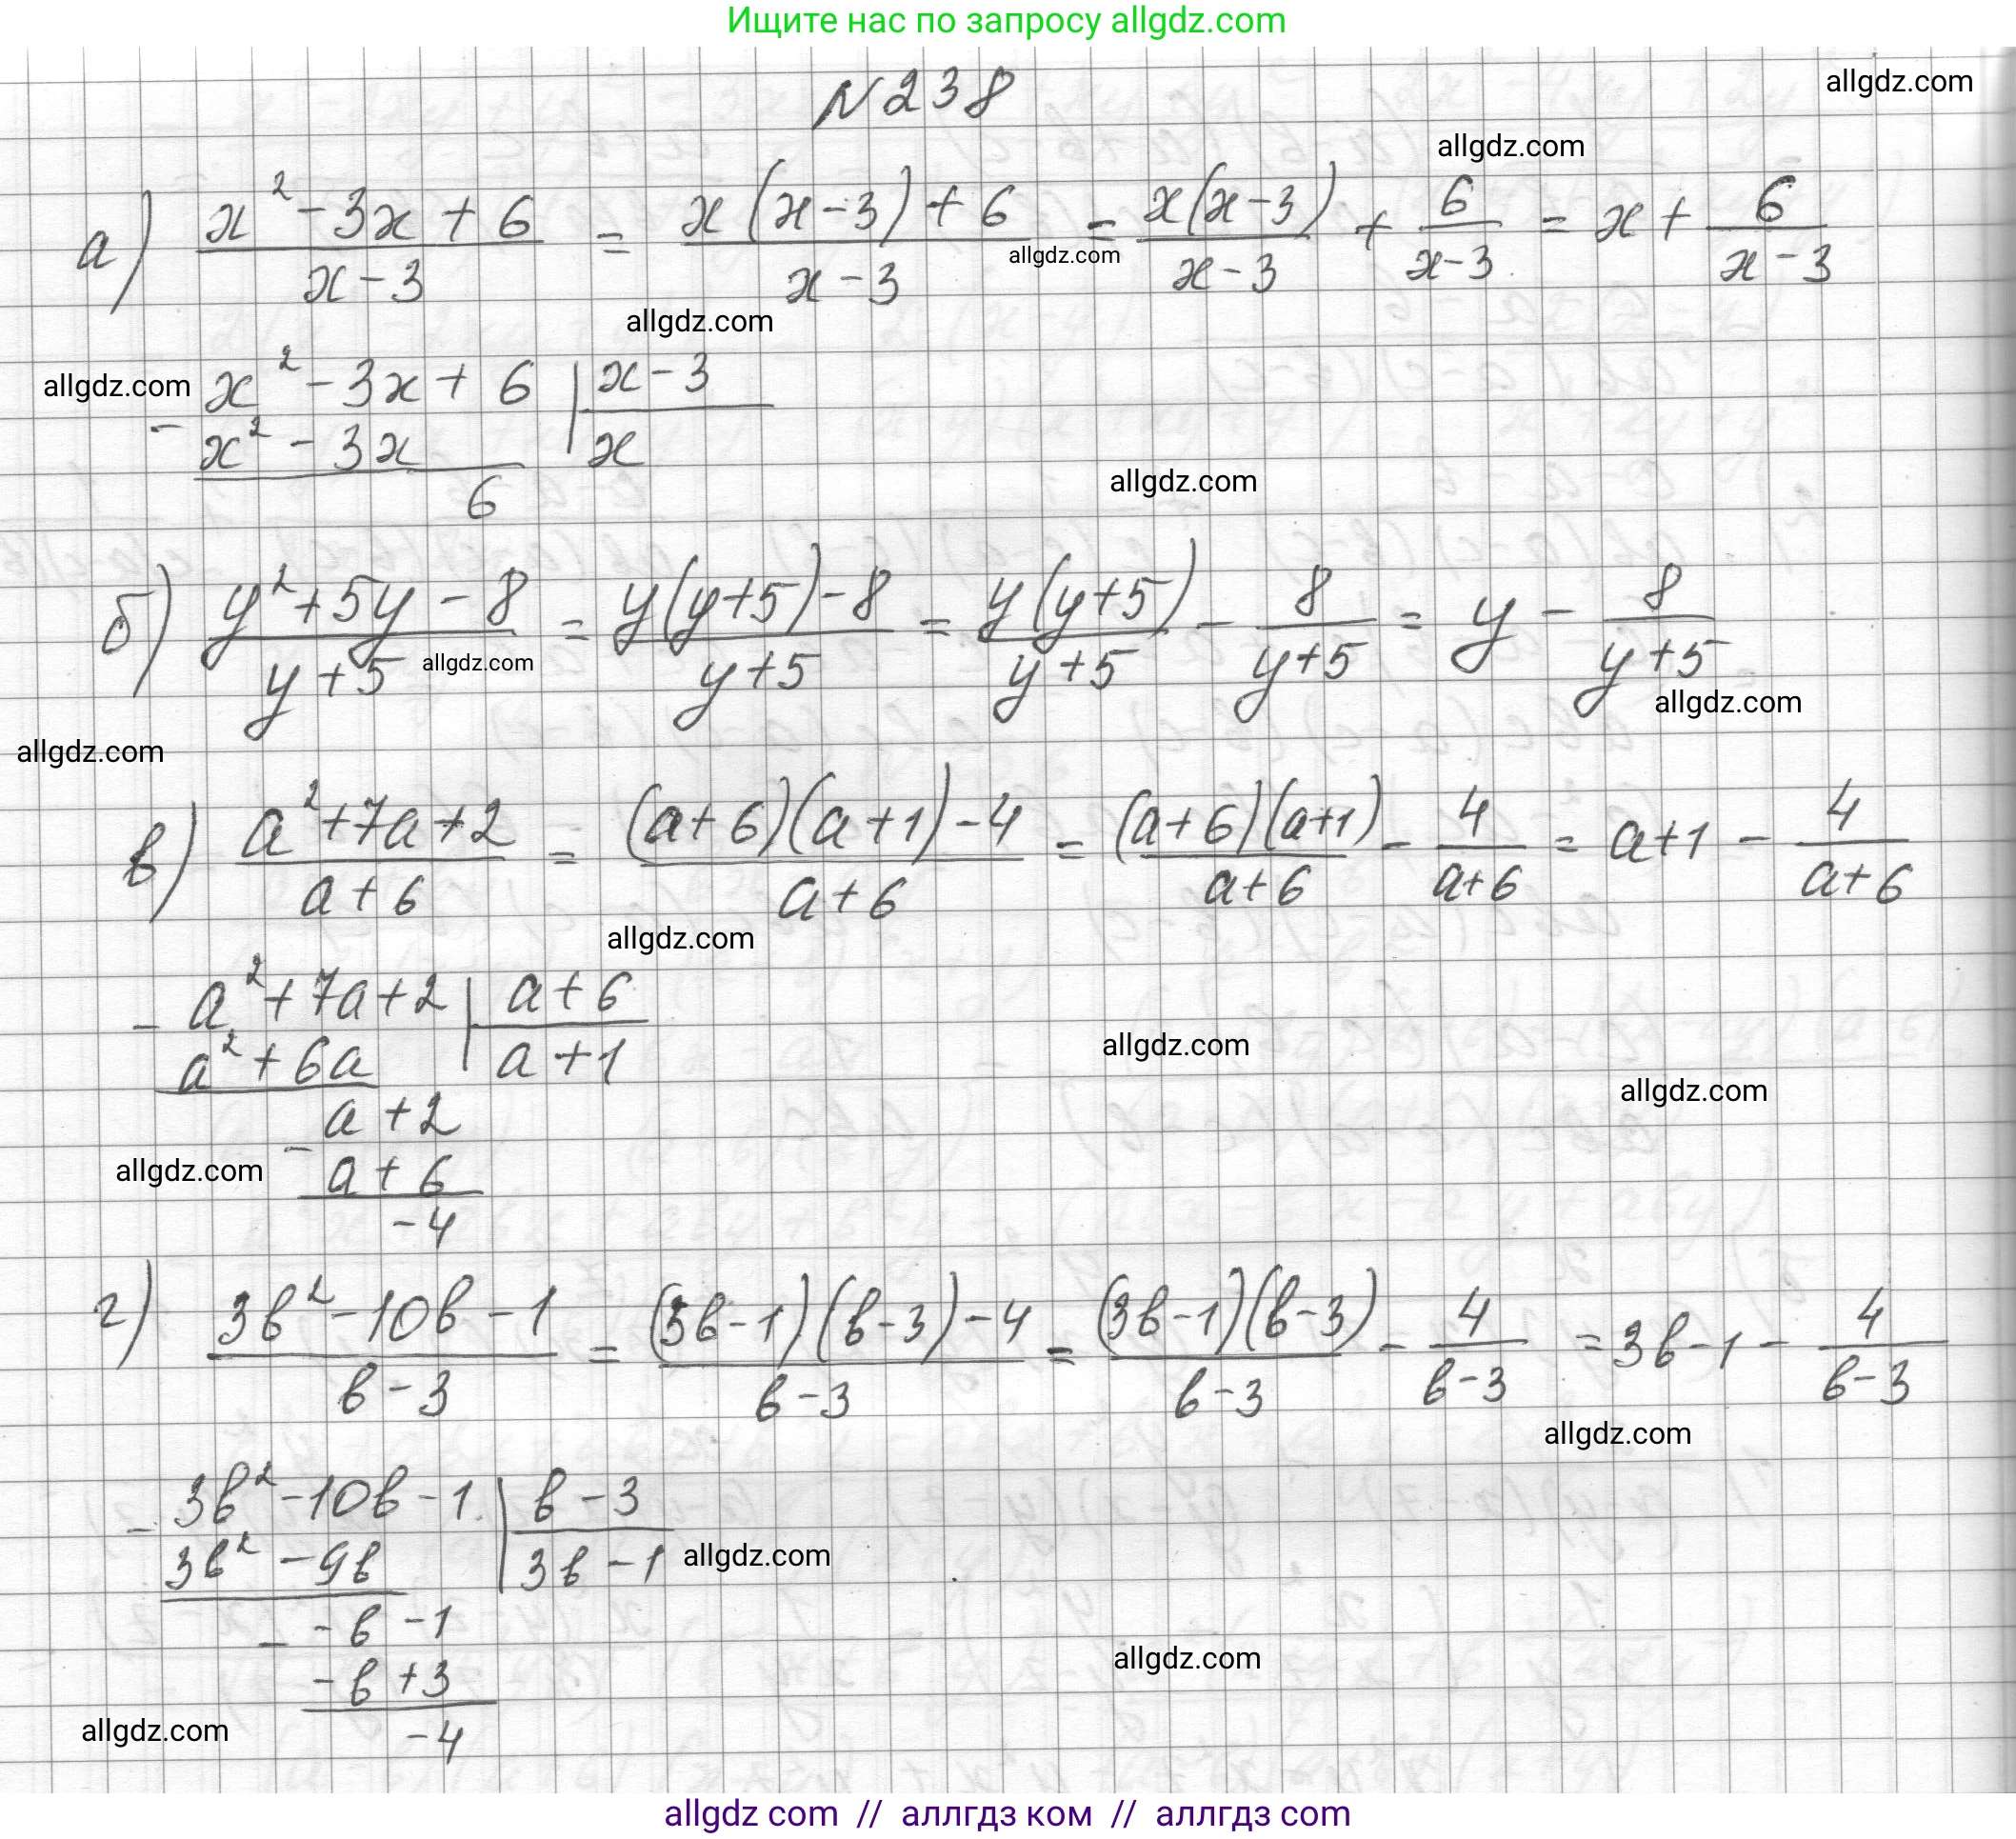 Ищите нас по запросу allgdz.com
allgdz.com
N 238
allgdz.com
а) \frac{x^2-3x+6}{x-3} = \frac{x(x-3)+6}{x-3} = \frac{x(x-3)}{x-3} + \frac{6}{x-3} = x + \frac{6}{x-3}
allgdz.com
allgdz.com
allgdz.com
- x^2-3x+6 | x-3
x^2-3x | x
6
allgdz.com
б) \frac{y^2+5y-8}{y+5} = \frac{y(y+5)-8}{y+5} = \frac{y(y+5)}{y+5} - \frac{8}{y+5} = y - \frac{8}{y+5}
allgdz.com
allgdz.com
allgdz.com
в) \frac{a^2+7a+2}{a+6} = \frac{(a+6)(a+1)-4}{a+6} = \frac{(a+6)(a+1)}{a+6} - \frac{4}{a+6} = a+1 - \frac{4}{a+6}
allgdz.com
- a^2+7a+2 | a+6
a^2+6a | a+1
allgdz.com
allgdz.com
- a+2
allgdz.com
a+6
-4
г) \frac{3b^2-10b-1}{b-3} = \frac{(3b-1)(b-3)-4}{b-3} = \frac{(3b-1)(b-3)}{b-3} - \frac{4}{b-3} = 3b-1 - \frac{4}{b-3}
allgdz.com
- 3b^2-10b-1 | b-3
3b^2-9b | 3b-1
allgdz.com
- -b-1
-b+3
allgdz.com
allgdz.com
-4
allgdz com // аллгдз ком // аллгдз com